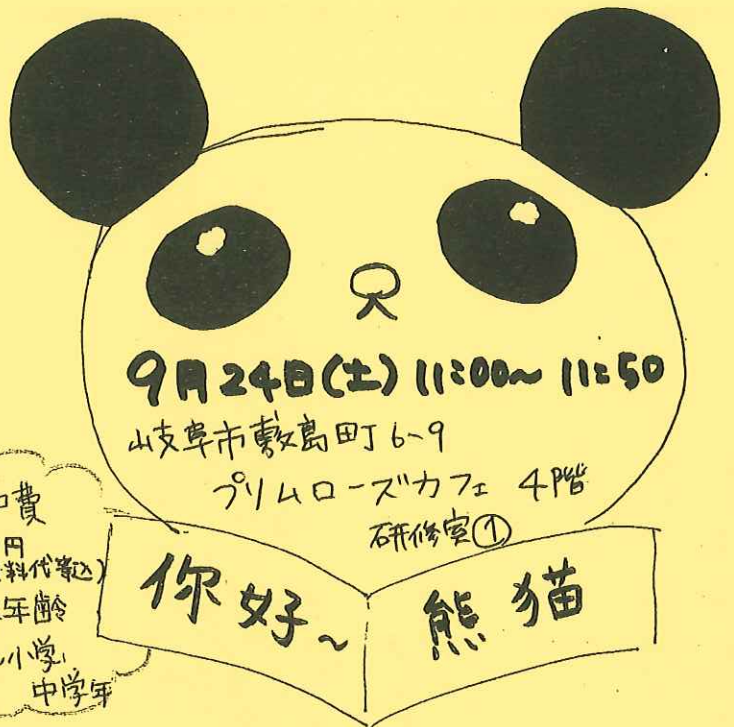 9月24日(土) 11:00~ 11:50
岐阜市敷島町 6-9
プリムローズカフェ 4階
研修室①
費
円
料代等込)
年齢
小学
中学年
你好~
熊猫